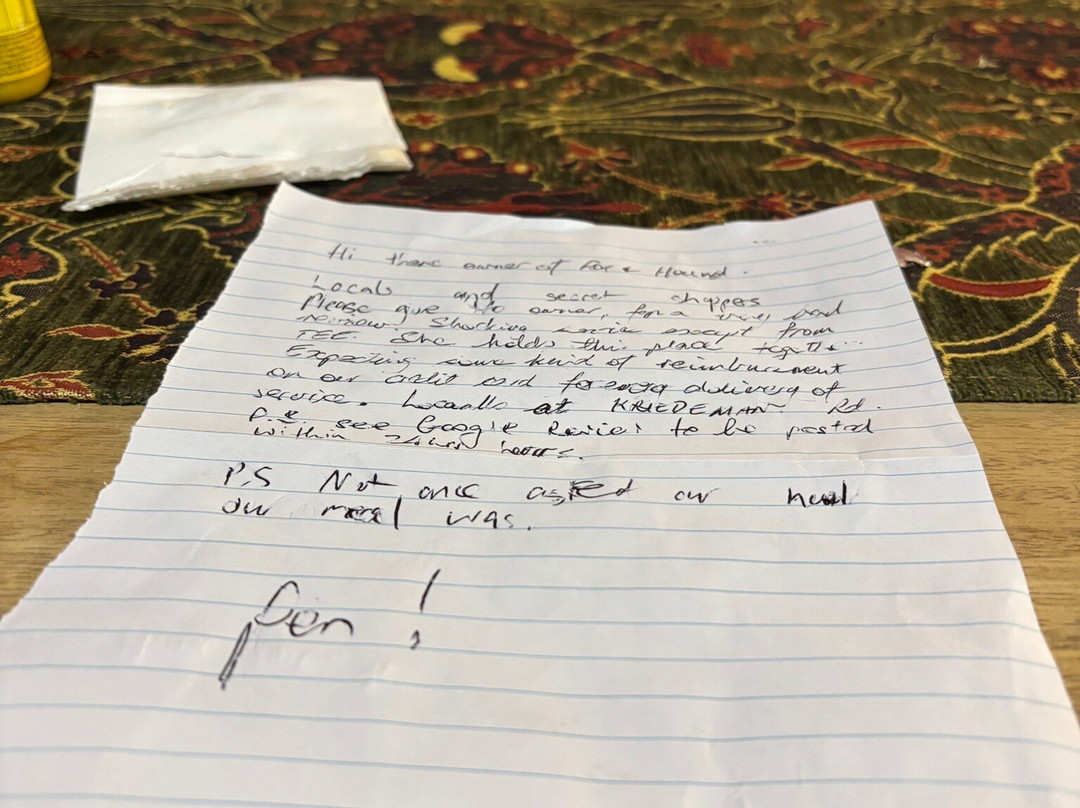 Hi there owner of Fox & Hound.
Locals and secret shoppes
Please give to owner, for a very bad
Shocking except from
TEE. She holds this place
Expecting some kind of reimbursement
on our credit card for delivery of
service. Locals at KRIEDEMAN Rd.
see Google to be posted
within hours.
P.S Not once asked our
our meal was.
Pen!